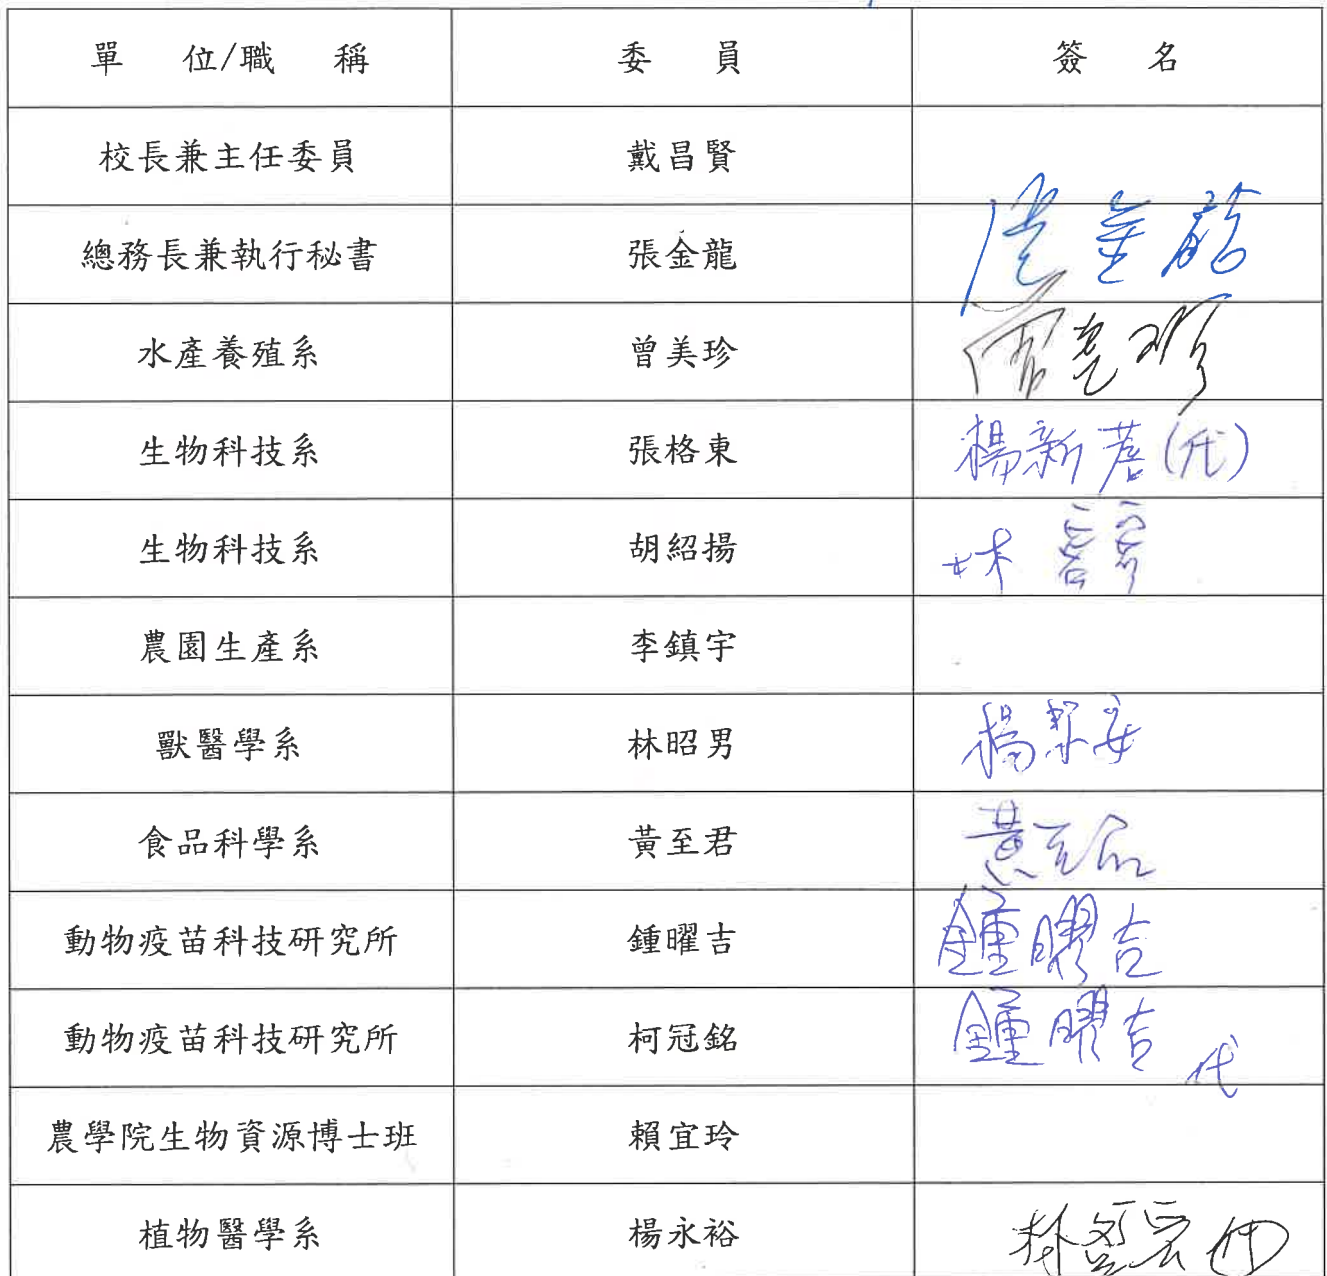 單 位/職 稱 委 員 簽 名
校長兼主任委員 戴昌賢
總務長兼執行秘書 張金龍 張金龍
水產養殖系 曾美珍 曾美珍
生物科技系 張格東 楊新(代)
生物科技系 胡紹揚 林
農園生產系 李鎮宇
獸醫學系 林昭男 楊
食品科學系 黃至君 黃至君
動物疫苗科技研究所 鍾曜吉 鍾曜吉
動物疫苗科技研究所 柯冠銘 鍾曜吉代
農學院生物資源博士班 賴宜玲
植物醫學系 楊永裕 林宏代